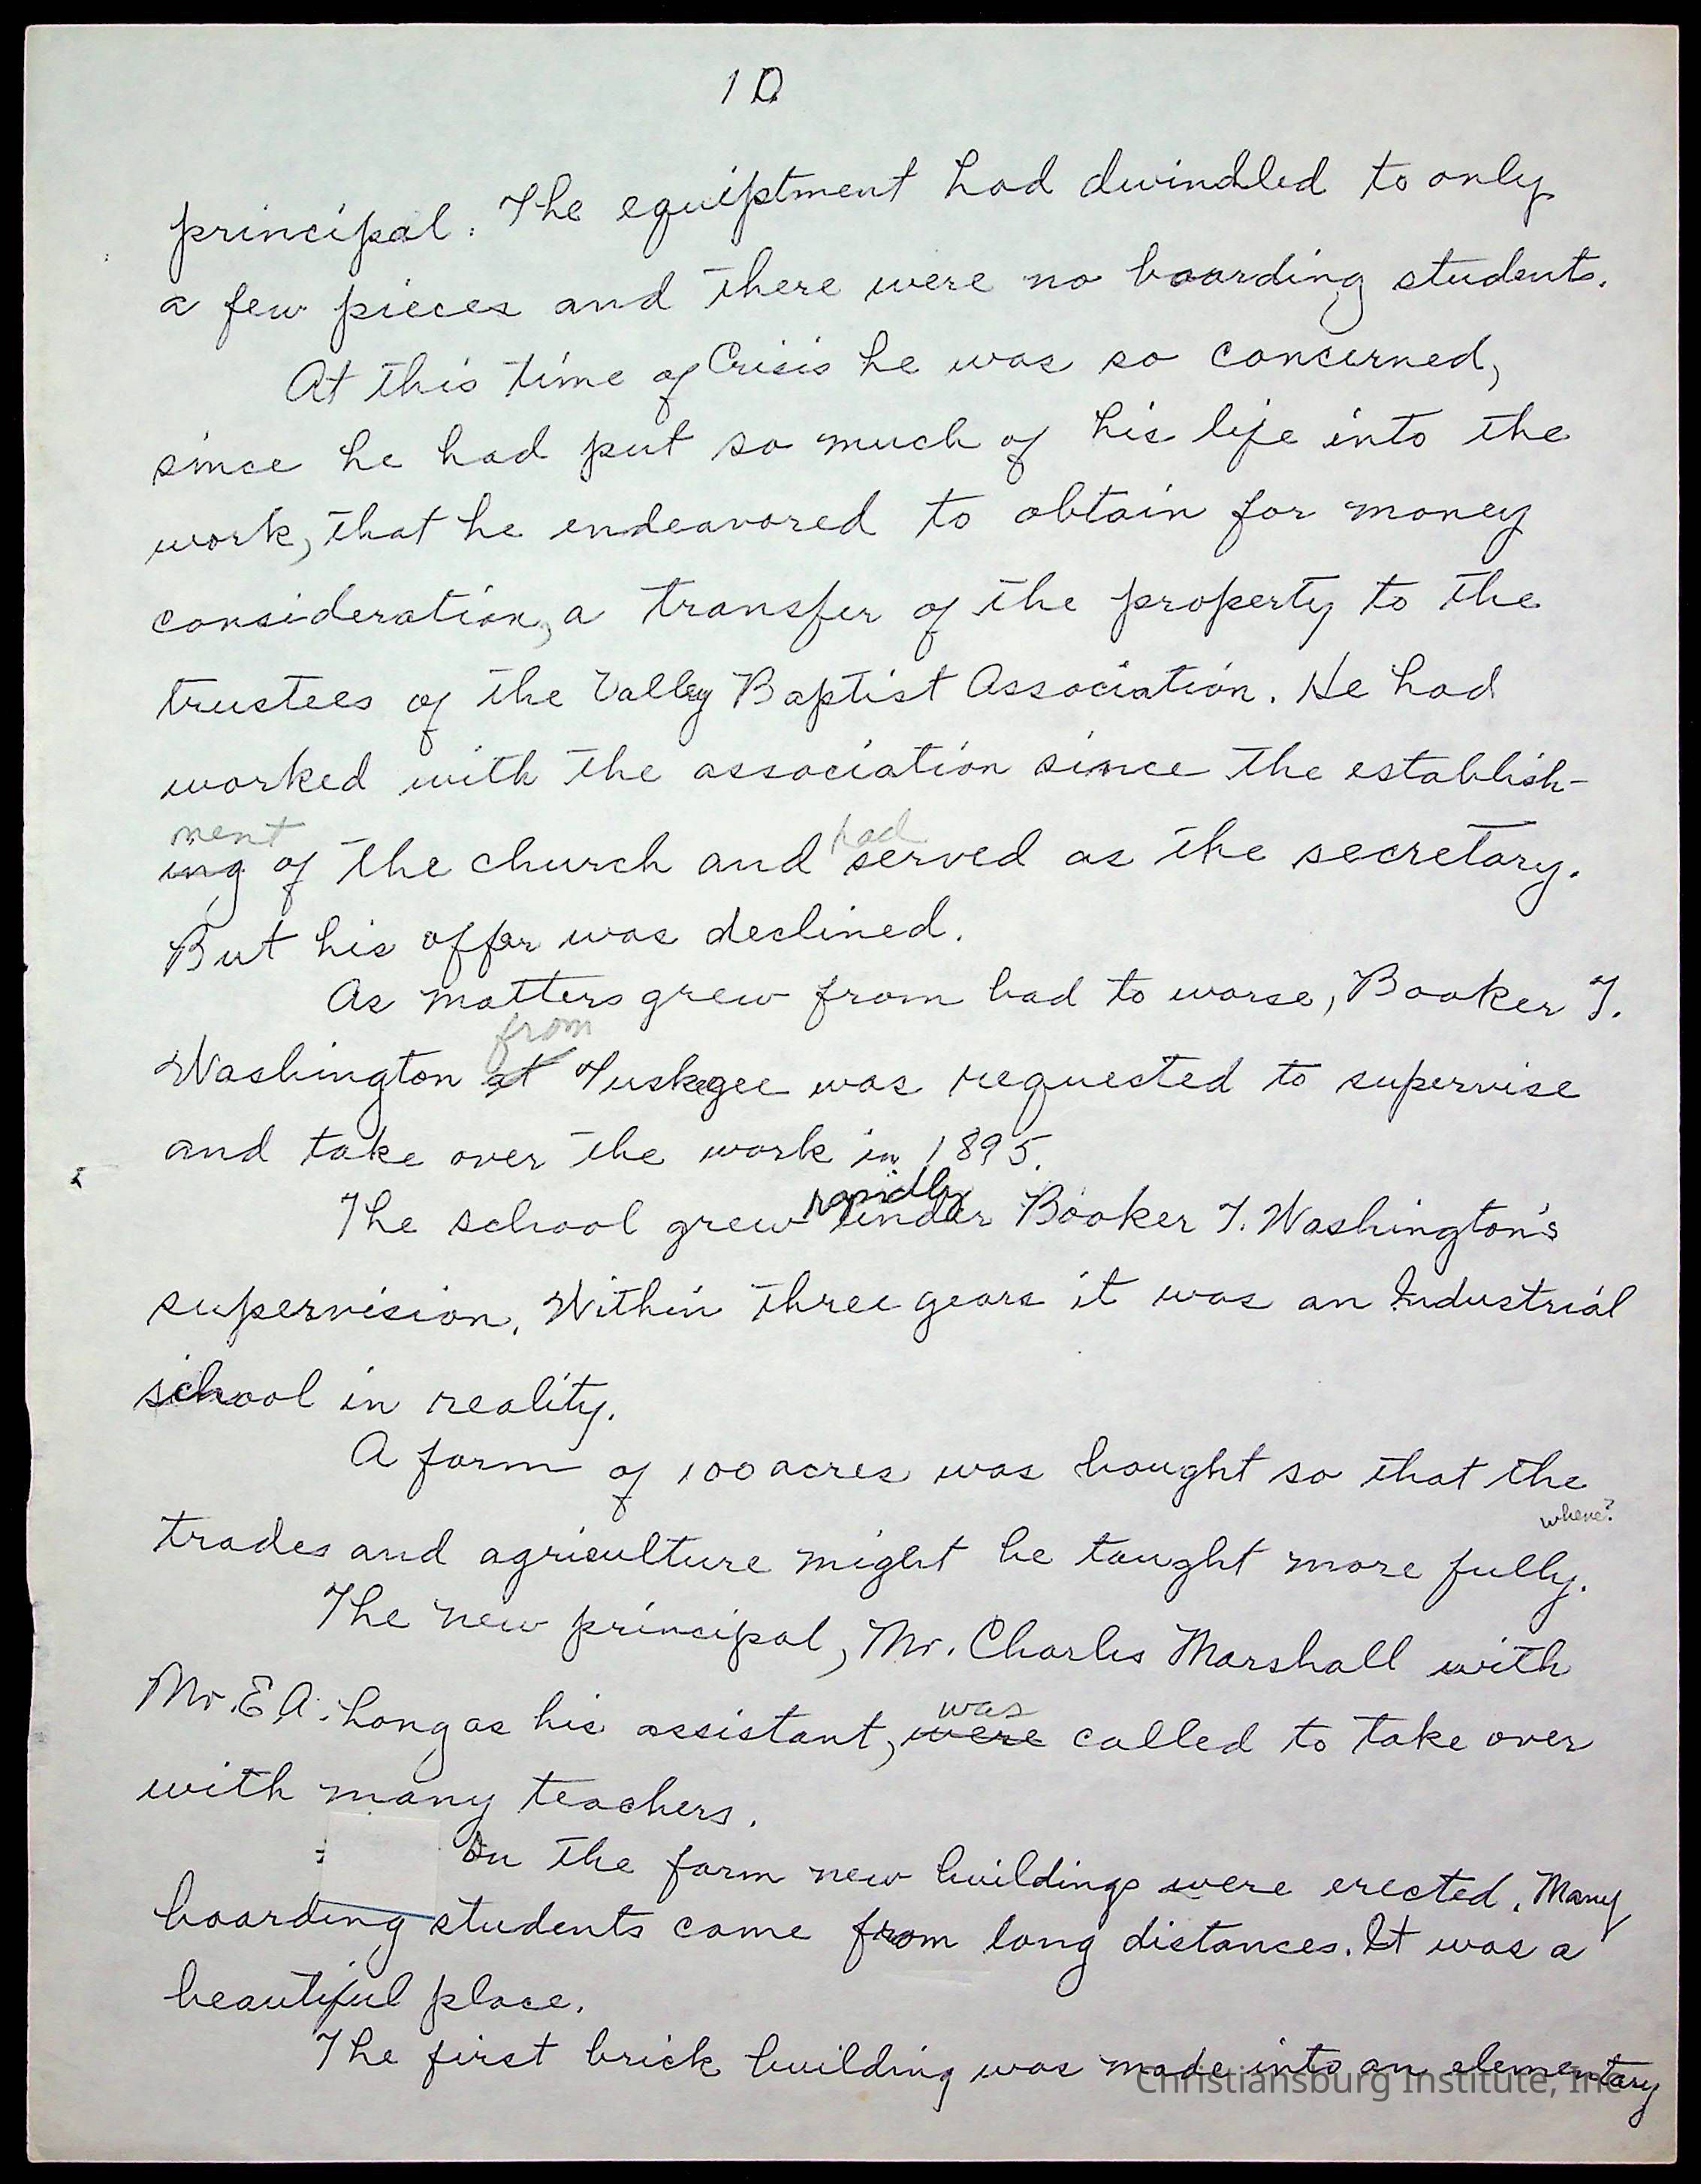 10
principal. The equiptment had dwindled to only
a few pieces and there were no boarding students.
At this time of Crisis he was so concerned,
since he had put so much of his life into the
work, that he endeavored to obtain for money
consideration, a transfer of the property to the
trustees of the Valley Baptist Association. He had
worked with the association since the establish-
ment had
ing of the church and served as the secretary.
But his offer was declined.
As matters grew from bad to worse, Booker T.
from
Washington at Tuskegee was requested to supervise
and take over the work in 1895.
rapidly
The school grew under Booker T. Washington's
supervision. Within three years it was an Industrial
school in reality.
A farm of 100 acres was bought so that the
where?
trades and agriculture might be taught more fully.
The new principal, Mr. Charles Marshall with
Mr. E A. Long as his assistant, were called to take over
was
with many teachers.
On the farm new buildings were erected. Many
boarding students came from long distances. It was a
beautiful place.
The first brick building was made into an elementary
Christiansburg Institute, Inc